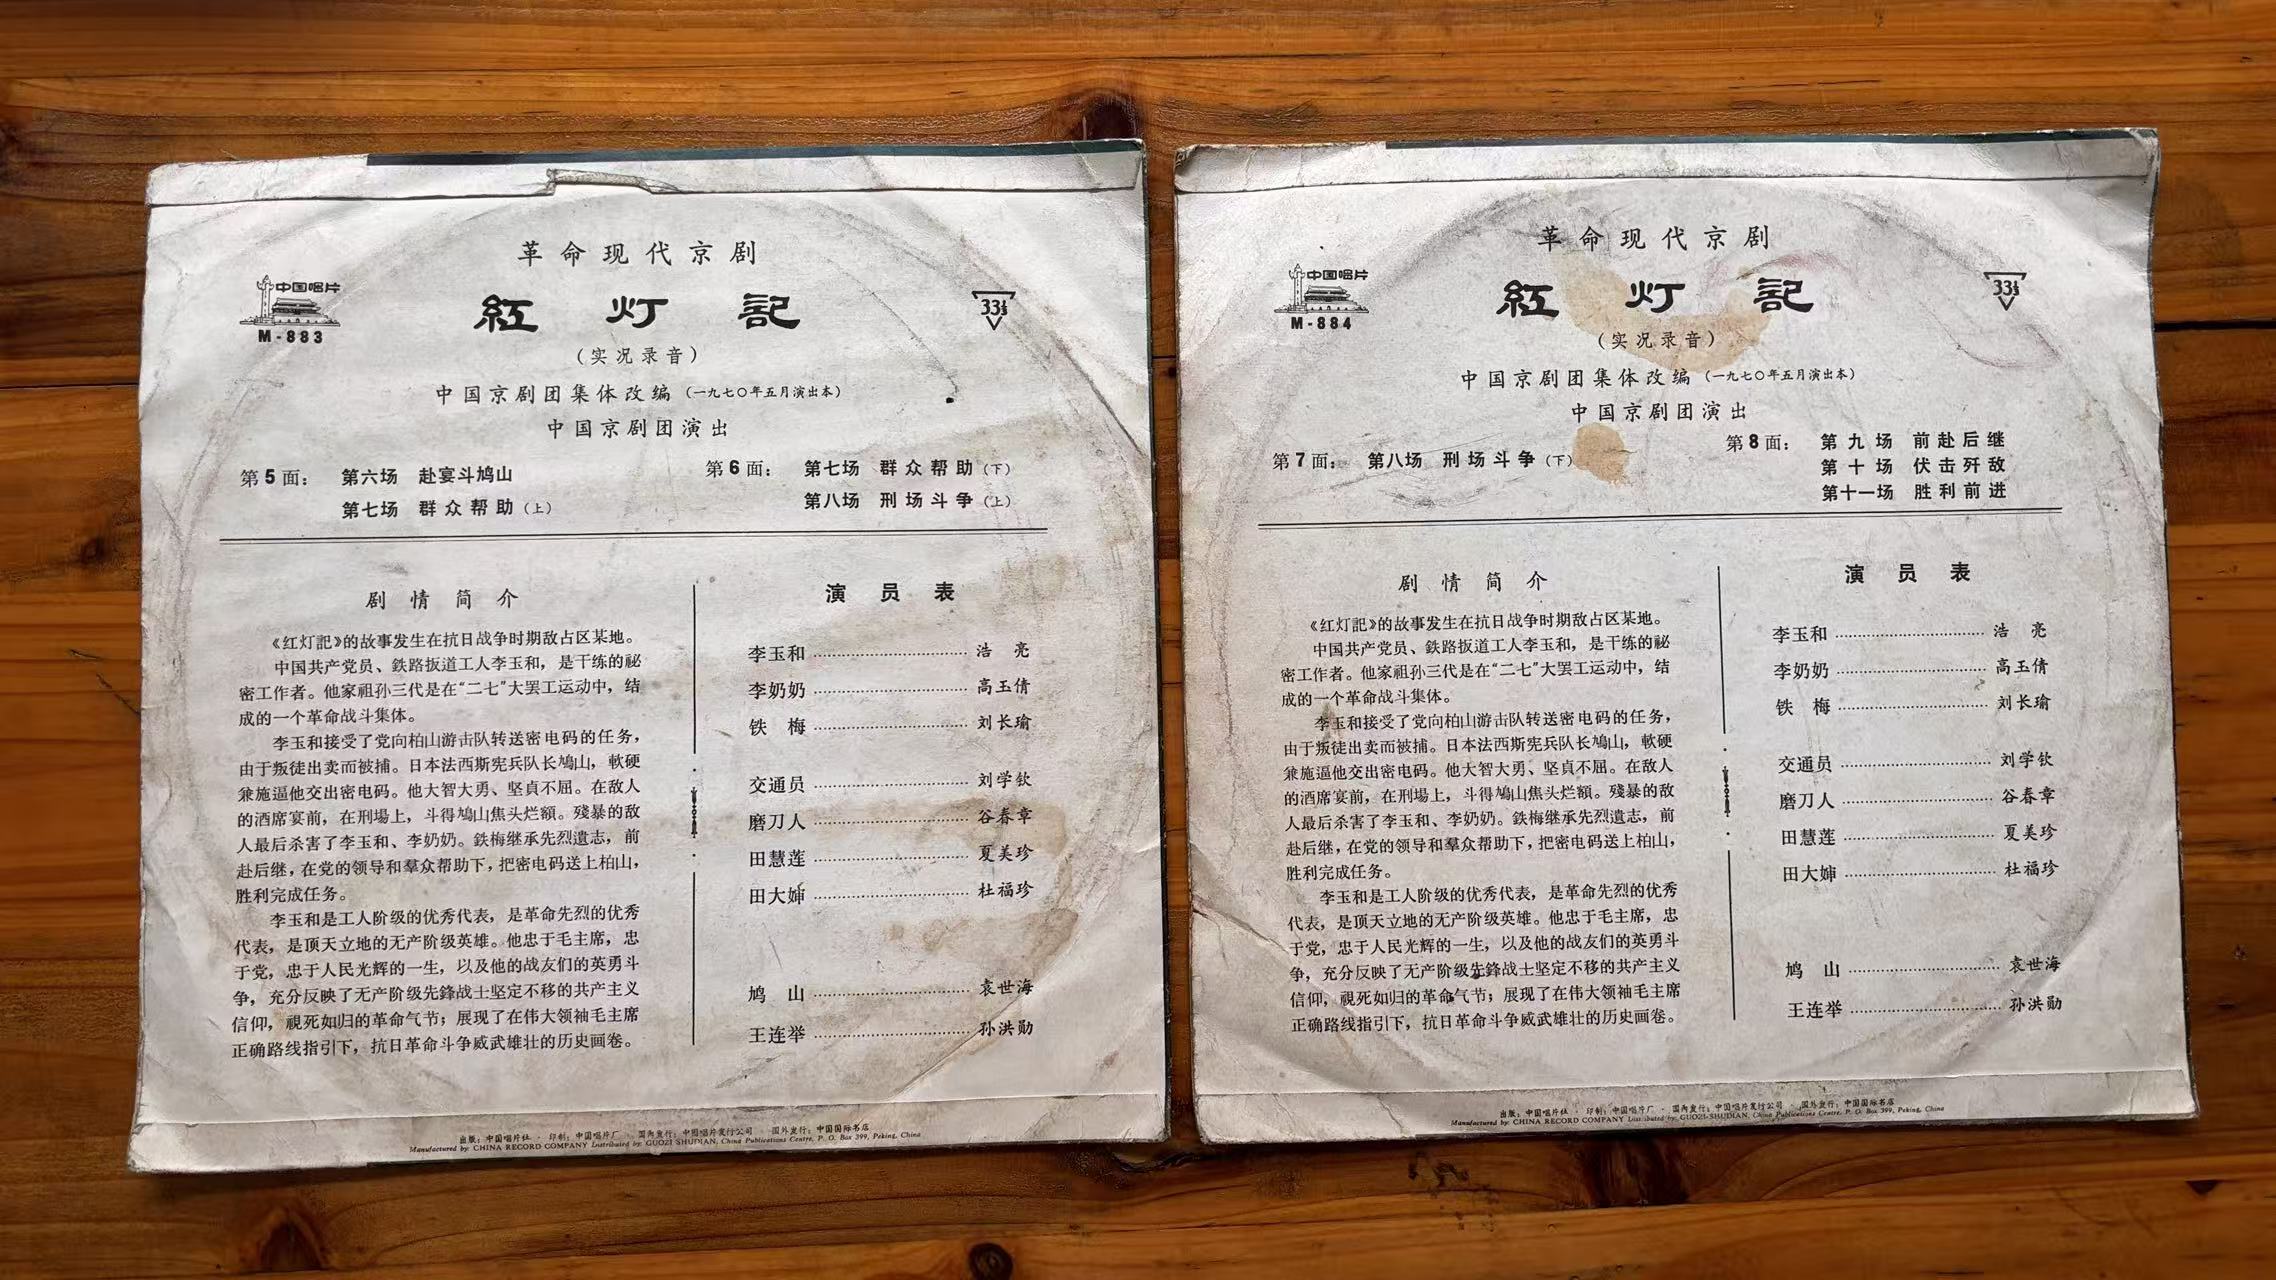 革命现代京剧
中国唱片
M-883
紅灯記
33⅓
（实况录音）
中国京剧团集体改编（一九七〇年五月演出本）
中国京剧团演出
第5面： 第六场 赴宴斗鸠山
第七场 群众帮助（上）
第6面： 第七场 群众帮助（下）
第八场 刑场斗争（上）
剧情简介
《红灯記》的故事发生在抗日战争时期敌占区某地。
中国共产党员、鉄路扳道工人李玉和，是干练的祕
密工作者。他家祖孙三代是在“二七”大罢工运动中，结
成的一个革命战斗集体。
李玉和接受了党向柏山游击队转送密电码的任务，
由于叛徒出卖而被捕。日本法西斯宪兵队长鸠山，軟硬
兼施逼他交出密电码。他大智大勇、坚貞不屈。在敌人
的酒席宴前，在刑場上，斗得鸠山焦头烂額。殘暴的敌
人最后杀害了李玉和、李奶奶。鉄梅继承先烈遺志，前
赴后继，在党的领导和羣众帮助下，把密电码送上柏山，
胜利完成任务。
李玉和是工人阶级的优秀代表，是革命先烈的优秀
代表，是顶天立地的无产阶级英雄。他忠于毛主席，忠
于党，忠于人民光輝的一生，以及他的战友们的英勇斗
争，充分反映了无产阶级先鋒战士坚定不移的共产主义
信仰，視死如归的革命气节；展现了在伟大领袖毛主席
正确路线指引下，抗日革命斗争威武雄壮的历史画卷。
演员表
李玉和 浩亮
李奶奶 高玉倩
铁梅 刘长瑜
交通员 刘学钦
磨刀人 谷春章
田慧莲 夏美珍
田大婶 杜福珍
鸠山 袁世海
王连举 孙洪勋
出版：中国唱片社 · 印制：中国唱片厂 · 国内发行：中国唱片发行公司 · 国外发行：中国国际书店
Manufactured by: CHINA RECORD COMPANY Distributed by: GUOZI SHUDIAN, China Publications Centre, P. O. Box 399, Peking, China
革命现代京剧
中国唱片
M-884
紅灯記
33⅓
（实况录音）
中国京剧团集体改编（一九七〇年五月演出本）
中国京剧团演出
第7面： 第八场 刑场斗争（下）
第8面： 第九场 前赴后继
第十场 伏击歼敌
第十一场 胜利前进
剧情简介
《红灯記》的故事发生在抗日战争时期敌占区某地。
中国共产党员、鉄路扳道工人李玉和，是干练的祕
密工作者。他家祖孙三代是在“二七”大罢工运动中，结
成的一个革命战斗集体。
李玉和接受了党向柏山游击队转送密电码的任务，
由于叛徒出卖而被捕。日本法西斯宪兵队长鸠山，軟硬
兼施逼他交出密电码。他大智大勇、坚貞不屈。在敌人
的酒席宴前，在刑場上，斗得鸠山焦头烂額。殘暴的敌
人最后杀害了李玉和、李奶奶。鉄梅继承先烈遺志，前
赴后继，在党的领导和羣众帮助下，把密电码送上柏山，
胜利完成任务。
李玉和是工人阶级的优秀代表，是革命先烈的优秀
代表，是顶天立地的无产阶级英雄。他忠于毛主席，忠
于党，忠于人民光輝的一生，以及他的战友们的英勇斗
争，充分反映了无产阶级先鋒战士坚定不移的共产主义
信仰，視死如归的革命气节；展现了在伟大领袖毛主席
正确路线指引下，抗日革命斗争威武雄壮的历史画卷。
演员表
李玉和 浩亮
李奶奶 高玉倩
铁梅 刘长瑜
交通员 刘学钦
磨刀人 谷春章
田慧莲 夏美珍
田大婶 杜福珍
鸠山 袁世海
王连举 孙洪勋
出版：中国唱片社 · 印制：中国唱片厂 · 国内发行：中国唱片发行公司 · 国外发行：中国国际书店
Manufactured by: CHINA RECORD COMPANY Distributed by: GUOZI SHUDIAN, China Publications Centre, P. O. Box 399, Peking, China